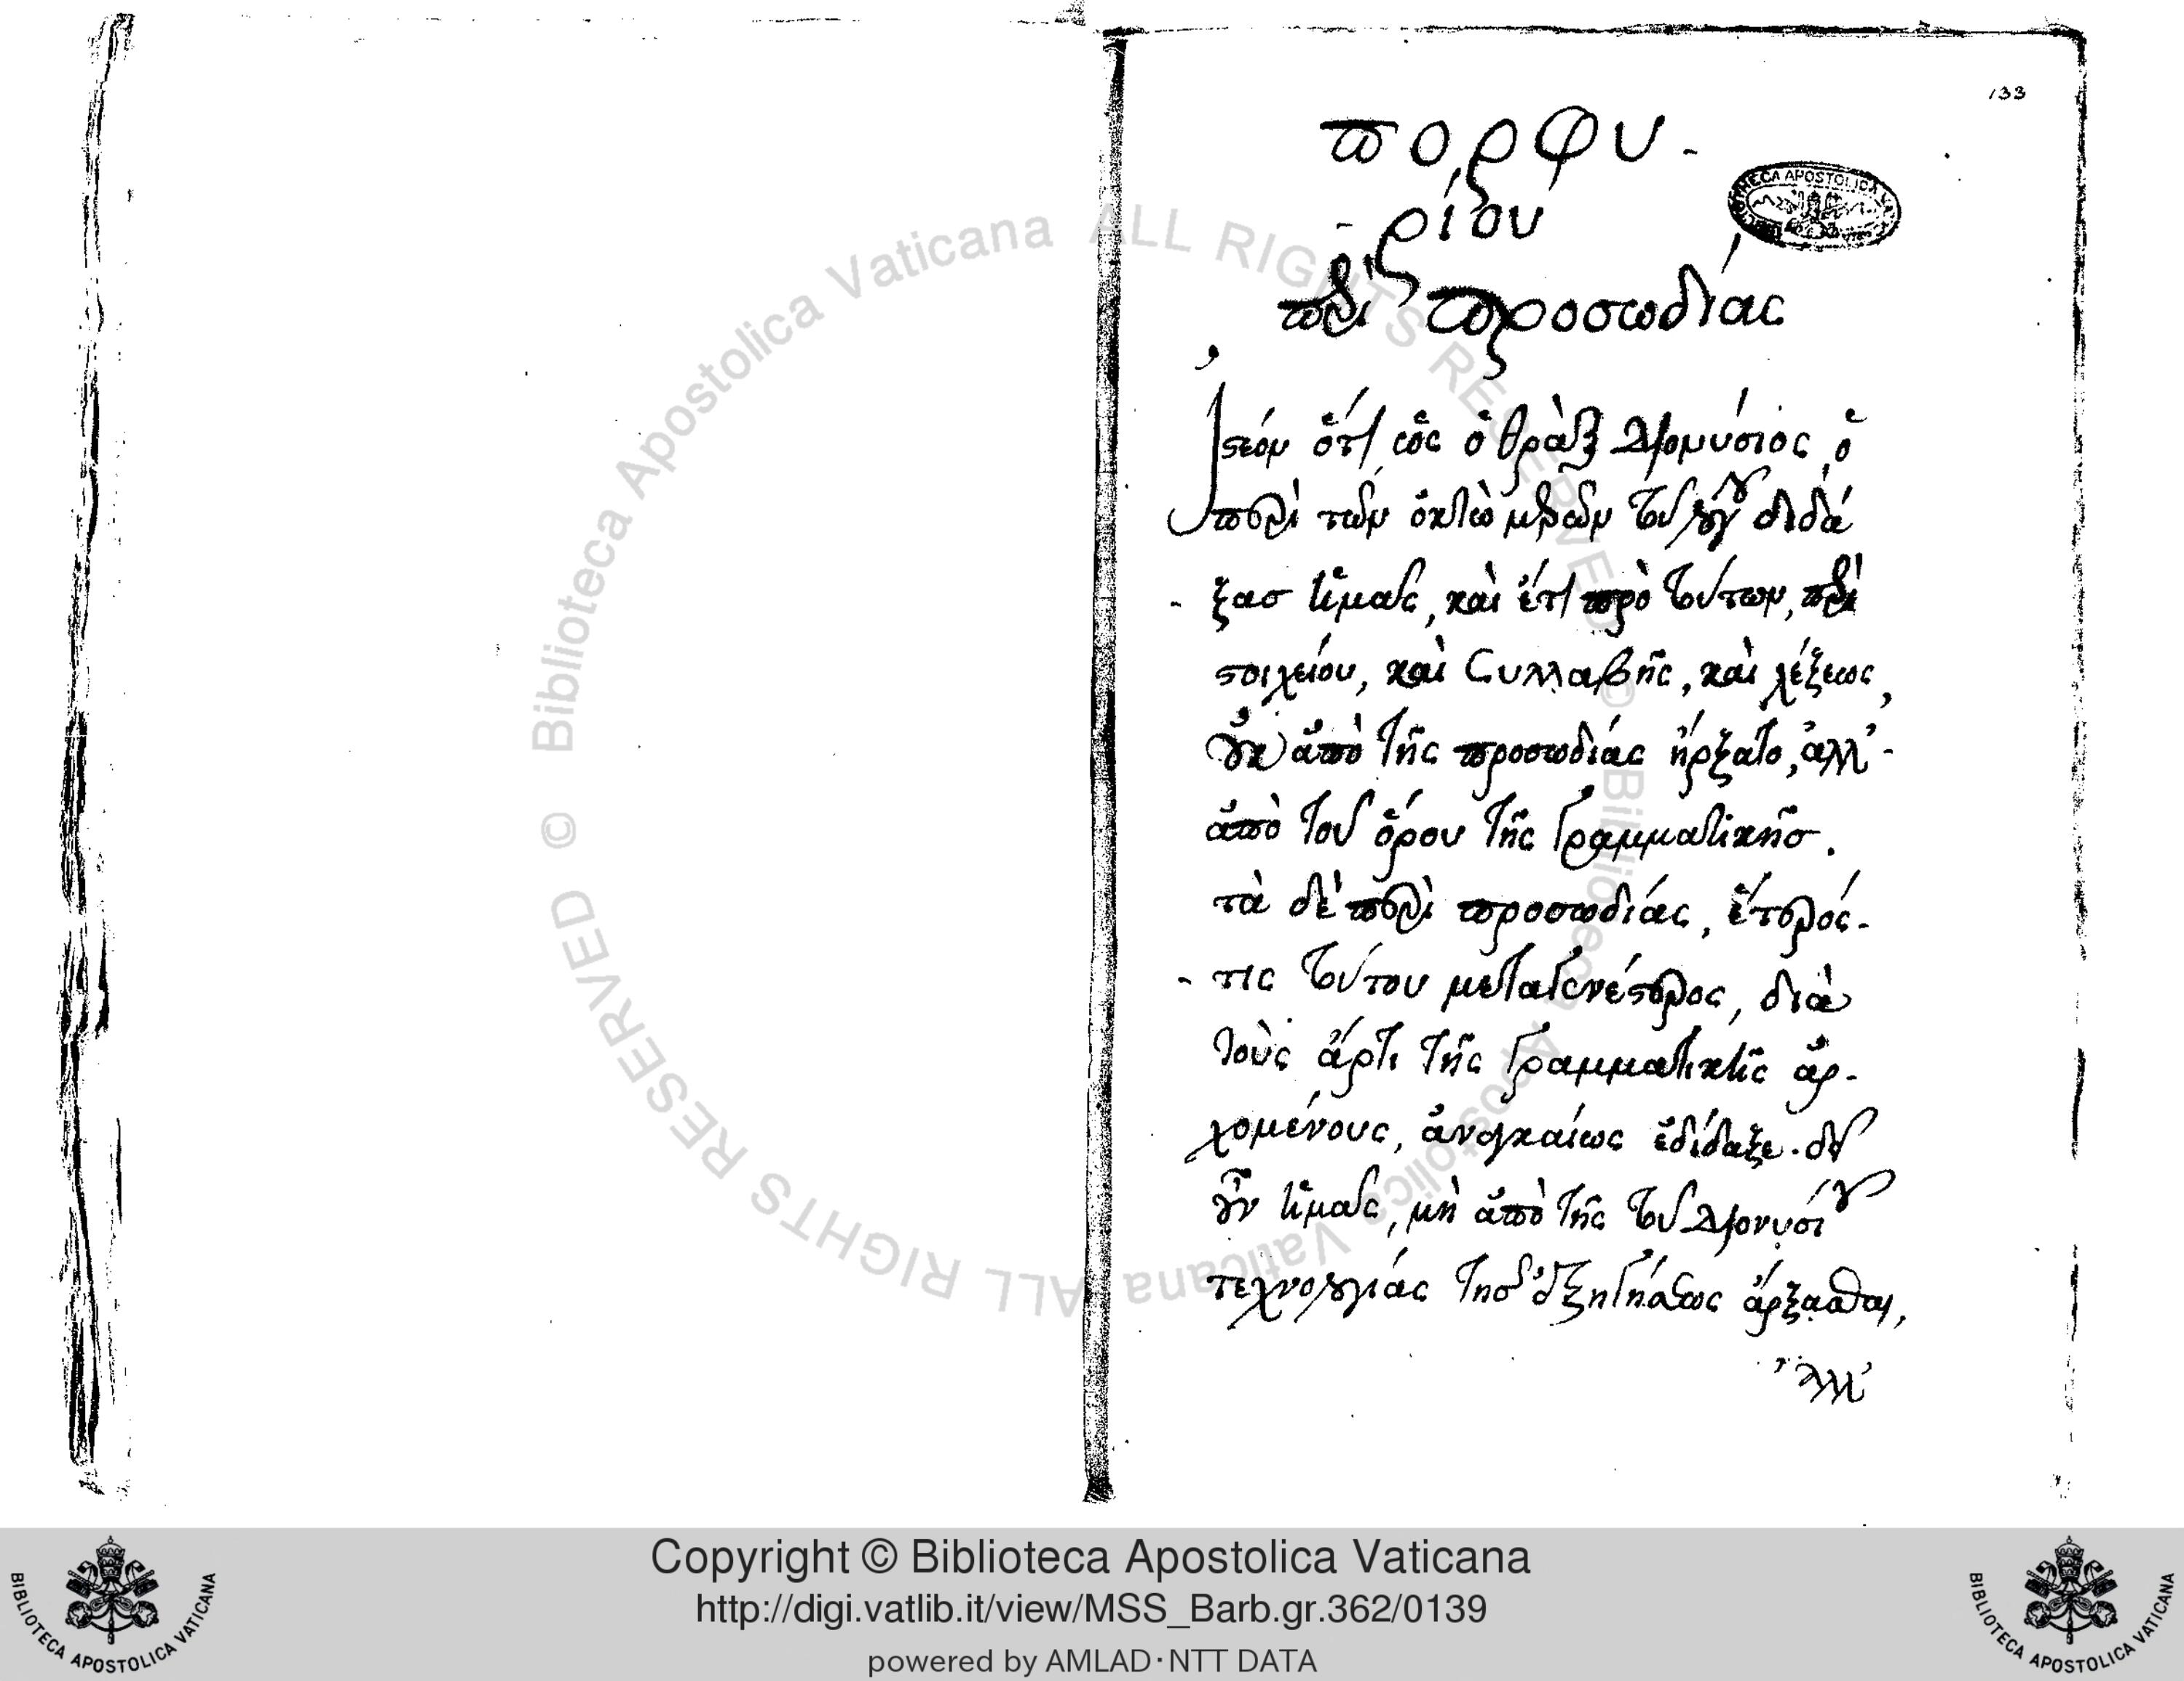 133
πορφυ-
-ρίου
περὶ προσωδίας
Ἰστέον ὅτι ὡς ὁ θρᾲξ Διονύσιος, ὁ
περὶ τῶν ὀκτὼ μερῶν τοῦ λόγου διδά
-ξας ἡμᾶς, καὶ ἔτι πρὸ τούτων, περὶ
στοιχείου, καὶ Συλλαβῆς, καὶ λέξεως,
οὐκ ἀπὸ τῆς προσωδίας ἤρξατο, ἀλλ'-
ἀπὸ τοῦ ὅρου τῆς γραμματικῆς.
τὰ δὲ περὶ προσωδίας, ἕτερός-
-τις τούτου μεταγενέστερος, διὰ
τοὺς ἄρτι τῆς γραμματικῆς ἀρ-
χομένους, ἀναγκαίως ἐδίδαξε. δεῖ
οὖν ἡμᾶς, μὴ ἀπὸ τῆς τοῦ Διονυσίου
τεχνολογίας τῆς ἐξηγήσεως ἄρξασθαι,
ἀλλ'
BIBLIOTECA APOSTOLICA VATICANA
© Biblioteca Apostolica Vaticana ALL RIGHTS RESERVED
Copyright © Biblioteca Apostolica Vaticana
http://digi.vatlib.it/view/MSS_Barb.gr.362/0139
powered by AMLAD·NTT DATA
BIBLIOTECA APOSTOLICA VATICANA
BIBLIOTECA APOSTOLICA VATICANA